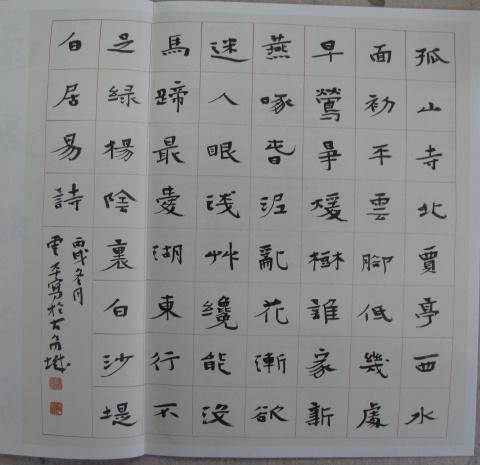 孤山寺北賈亭西水
面初平雲腳低幾處
早鶯爭煖樹誰家新
燕啄春泥亂花漸欲
迷人眼淺艸纔能沒
馬蹄最愛湖東行不
足綠楊陰裏白沙堤
白居易詩
丙戌冬月
寫於